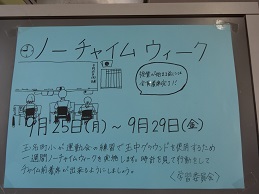 ノーチャイムウィーク
9月25日(月)〜9月29日(金)
玉川町小が運動会の練習で玉中グラウンドを使用するため
一週間ノーチャイムウィークを実施します。時計を見て行動をして
チャイム前着席が出来るようにしましょう。
〈学習委員会〉